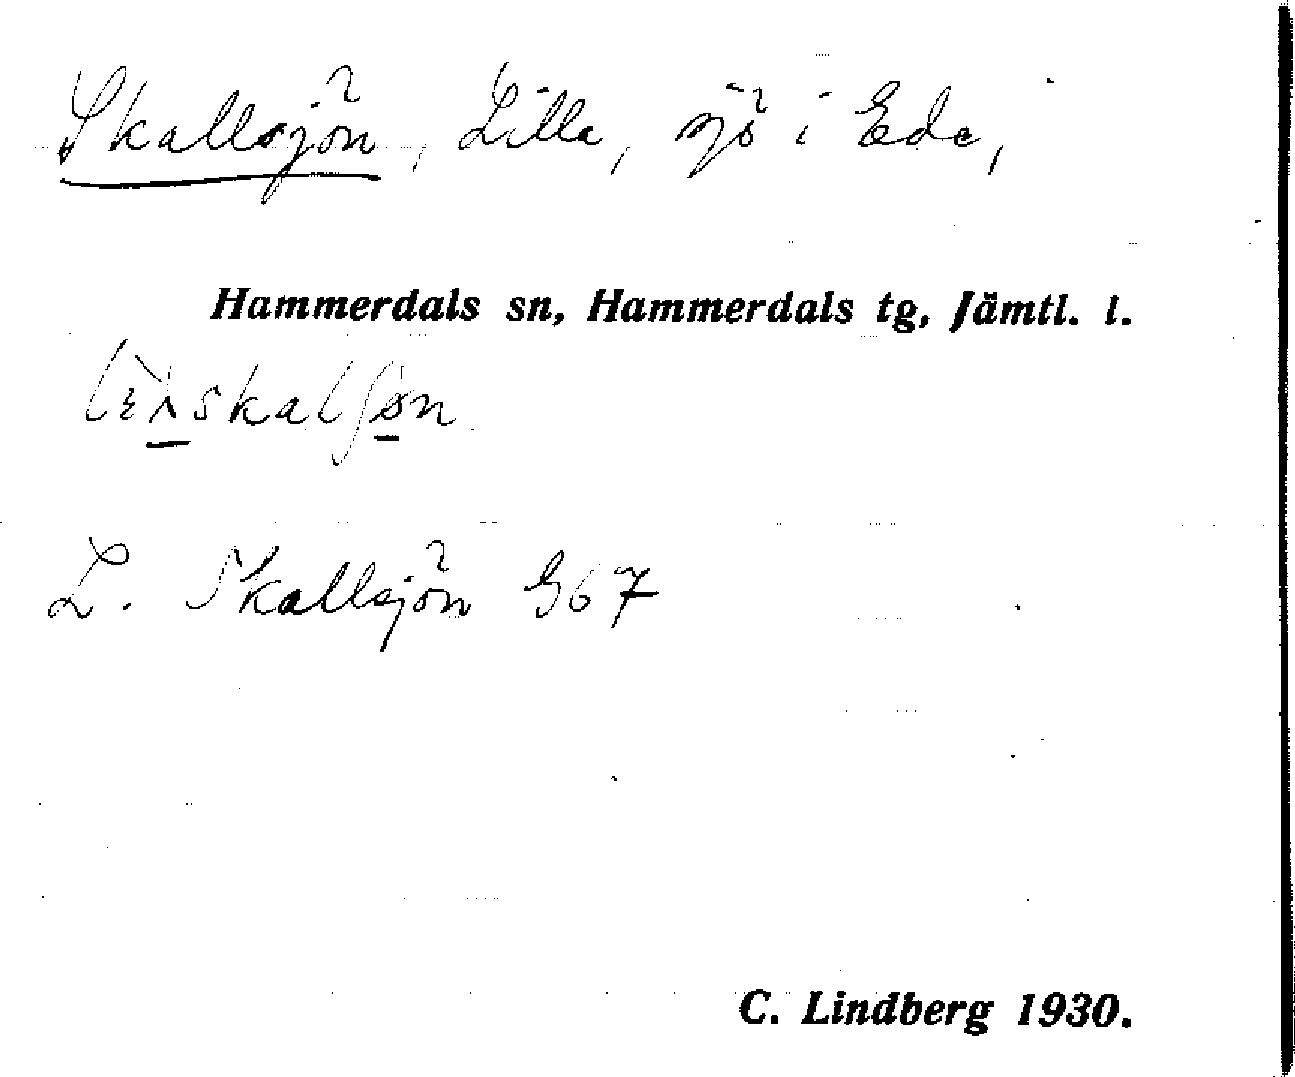 Skallsjön, Lilla, sjö i Ede,
Hammerdals sn, Hammerdals tg, Jämtl. l.
L. Skallsjön G67
C. Lindberg 1930.